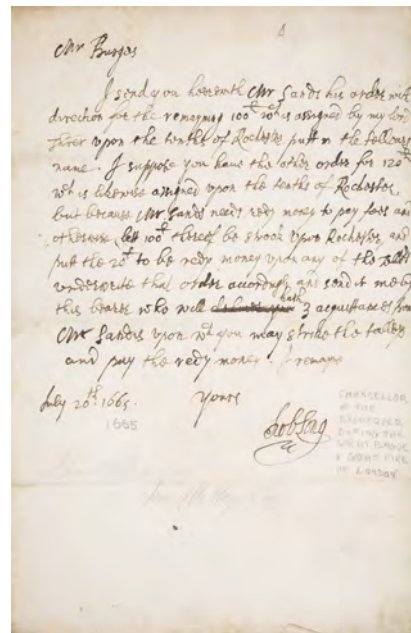 Mr Burges
I send you herewith Mr Sands his order with
direction for the remayning 100ˡ wᶜʰ is assigned by my lord
Threr upon the tenths of Rochester putt in the fellowes
name. I suppose you have the other order for 120ˡ
wᶜʰ is likewise assigned upon the tenths of Rochester,
but because Mr Sands needs redy money to pay fees and
otherwise, lett 100ˡ thereof be strook upon Rochester, and
putt the 20ˡ to be redy money upon any of the
underwrite that order accordingly and send it me by
this bearer who will hath 3 acquittances from
Mr Sandis upon wᶜʰ you may strike the talleys
and pay the redy money. I remayne
July 20ᵗʰ. 1665. Yours
1665
Rob Long
CHANCELLOR
OF THE
EXCHEQUER
DURING THE
GREAT PLAGUE
& GREAT FIRE
OF LONDON